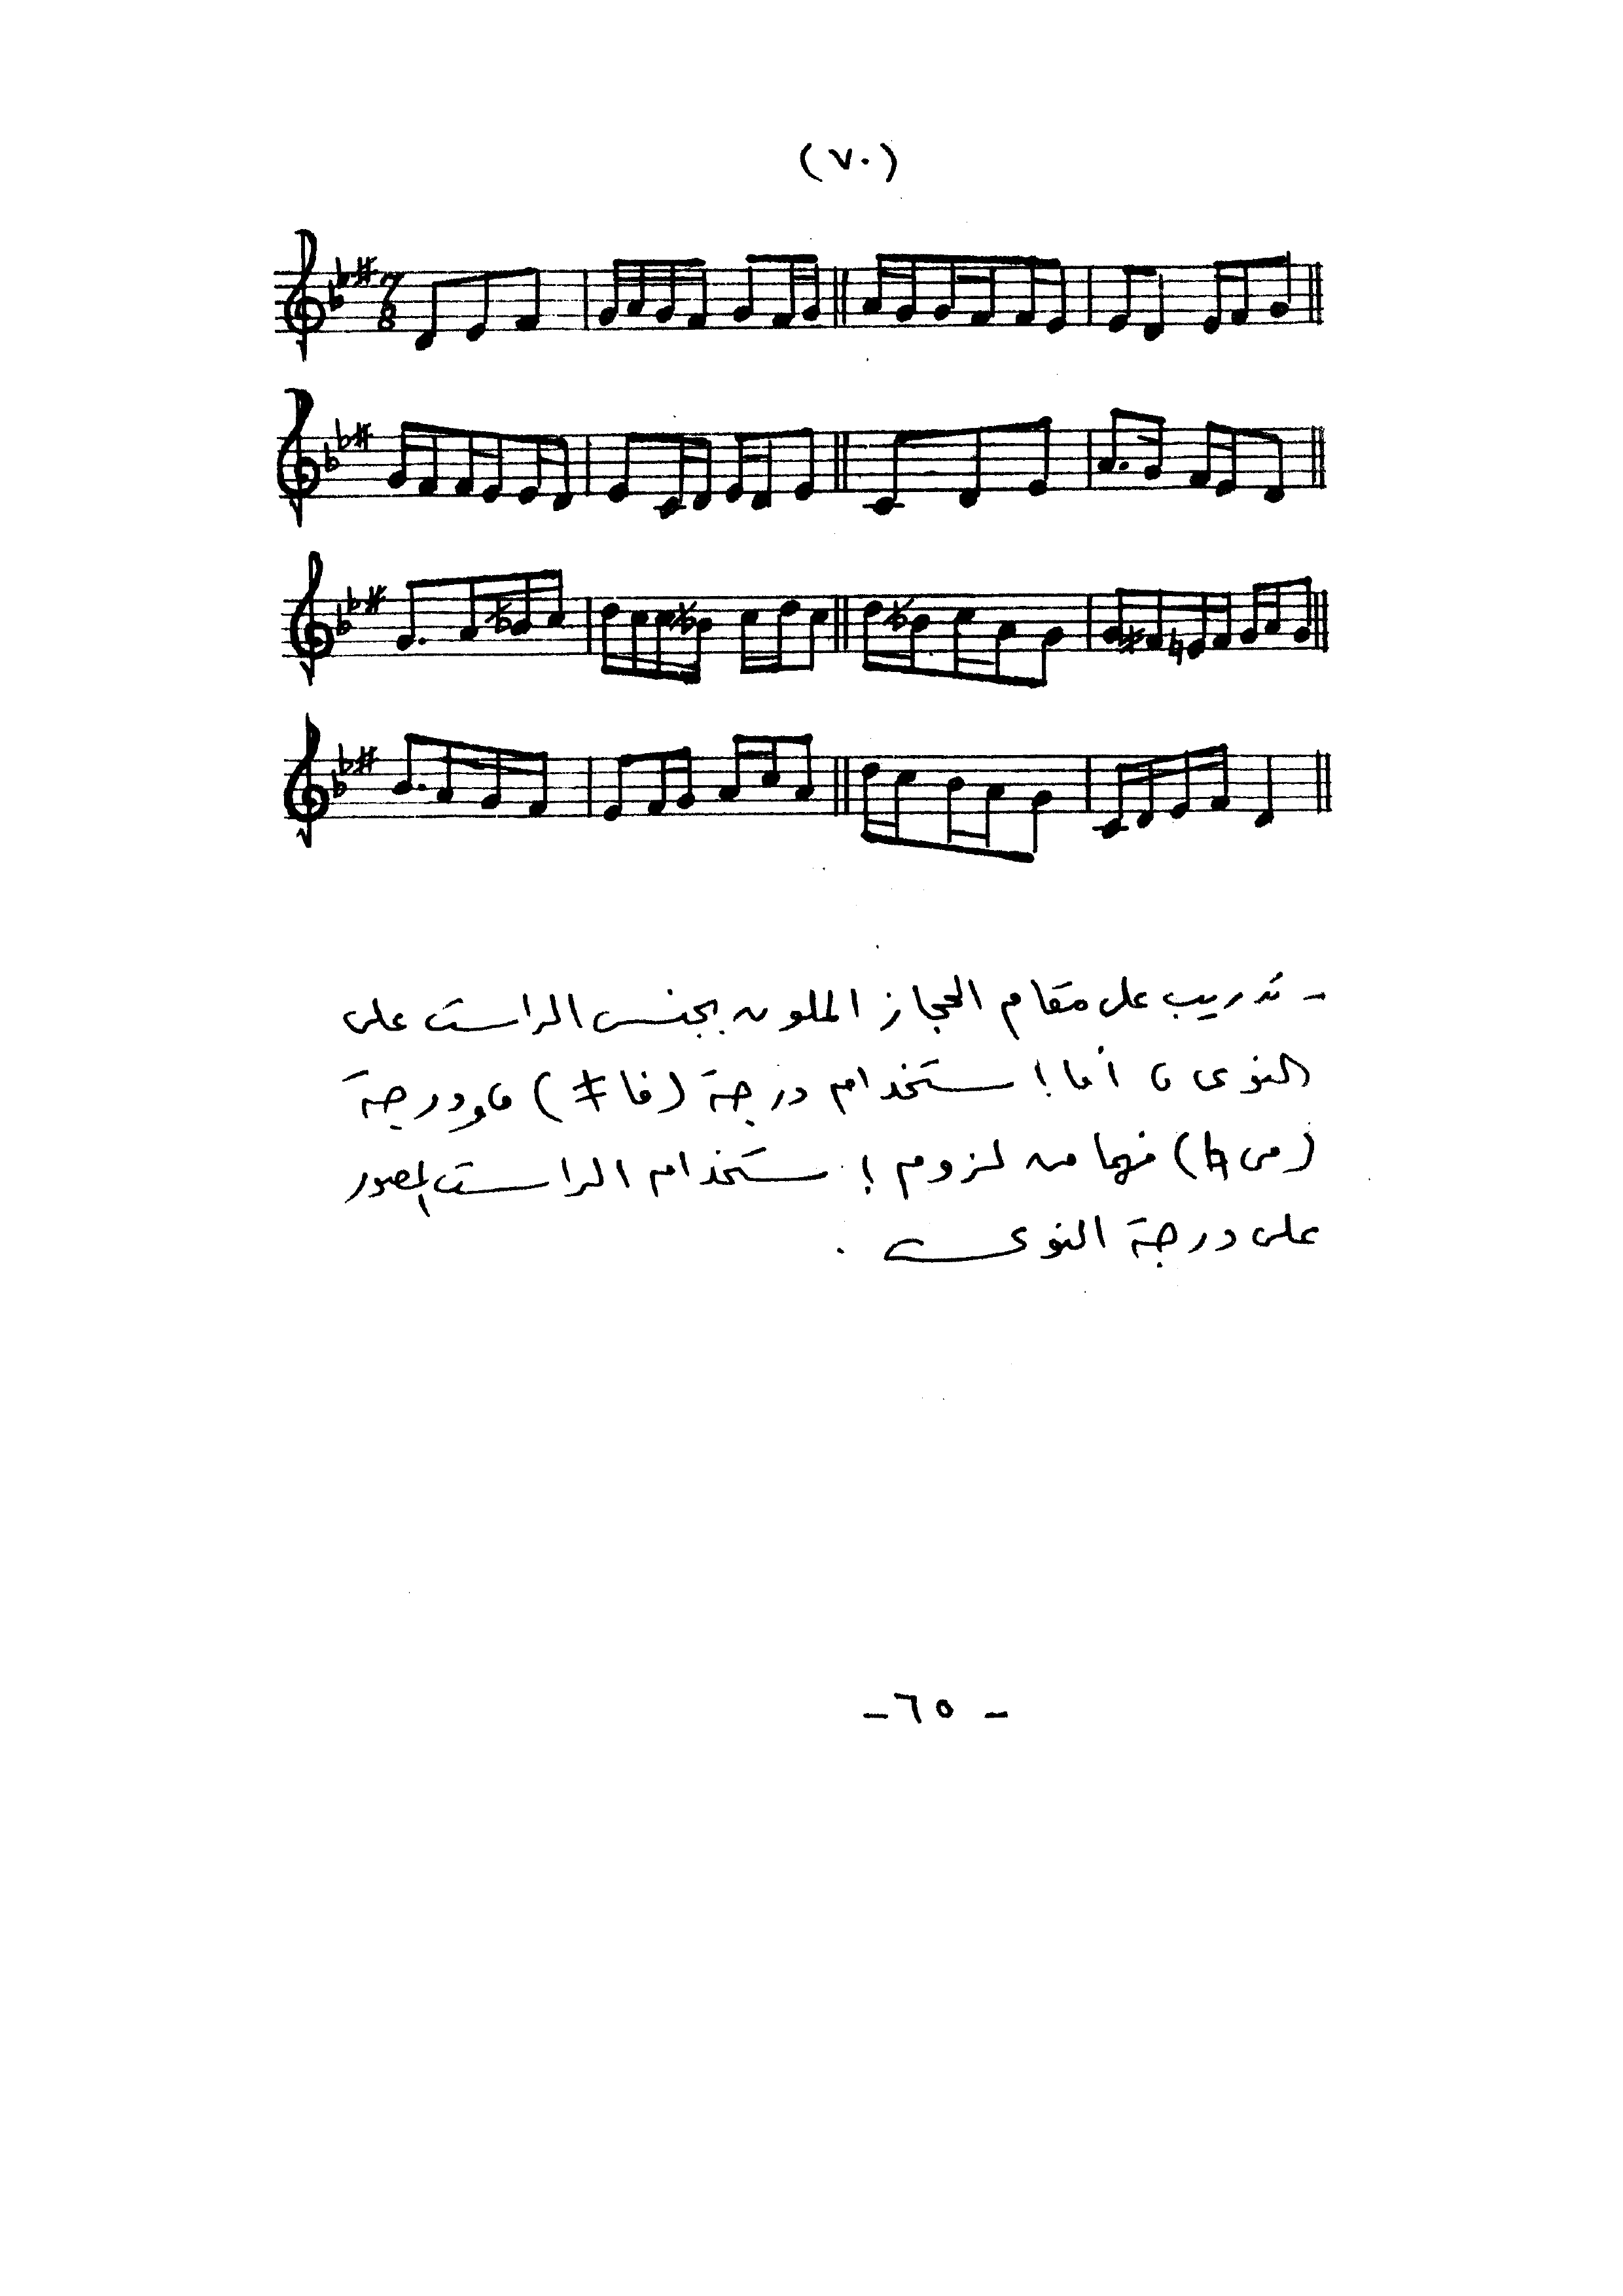 (٧٠)
7
8
- تدريب على مقام الحجاز الملون بجنس الراست على
النوى ، أما إستخدام درجة (فا ‡) ، ودرجة
(مى ♮) فهما من لزوم إستخدام الراست المصور
على درجة النوى .
- ٦٥ -